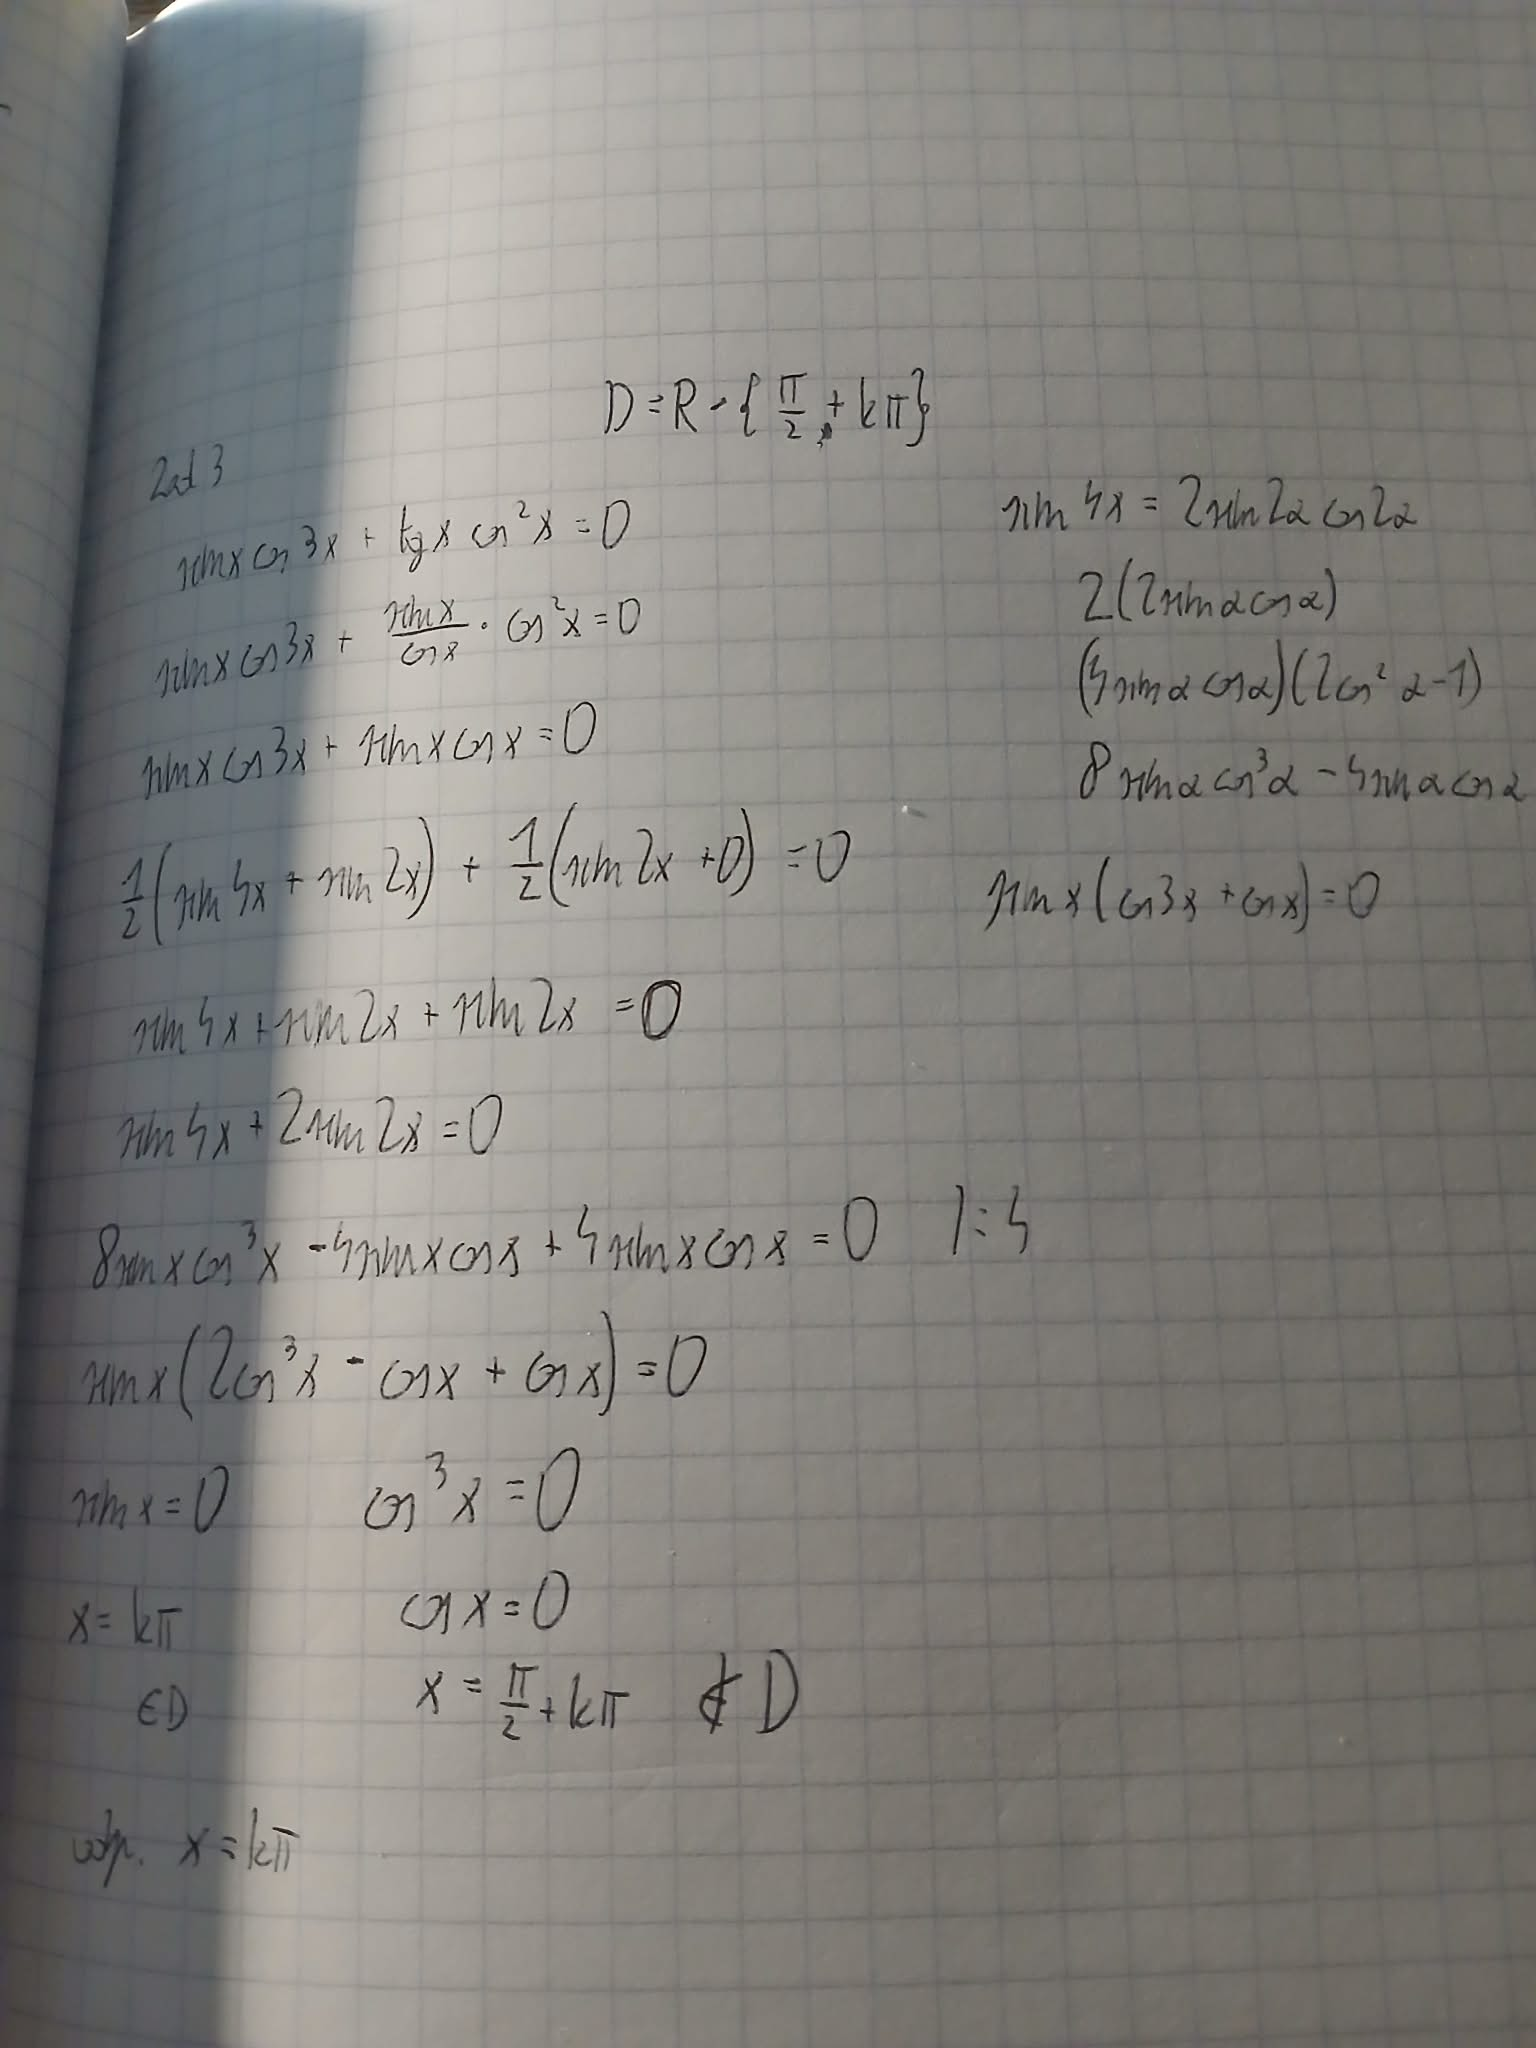 D = R - {π/2 + kπ}
Zad 3
sin x cos 3x + tg x cos² x = 0
sin x cos 3x + sin x / cos x · cos² x = 0
sin x cos 3x + sin x cos x = 0
1/2 (sin 4x + sin 2x) + 1/2 (sin 2x + 0) = 0
sin 4x + sin 2x + sin 2x = 0
sin 4x + 2 sin 2x = 0
8 sin x cos³ x - 4 sin x cos x + 4 sin x cos x = 0 / : 4
sin x (2 cos³ x - cos x + cos x) = 0
sin x = 0 cos³ x = 0
x = kπ cos x = 0
∈ D x = π/2 + kπ ∉ D
odp. x = kπ
sin 4x = 2 sin 2α cos 2α
2 (2 sin α cos α)
(4 sin α cos α) (2 cos² α - 1)
8 sin α cos³ α - 4 sin α cos α
sin x (cos 3x + cos x) = 0